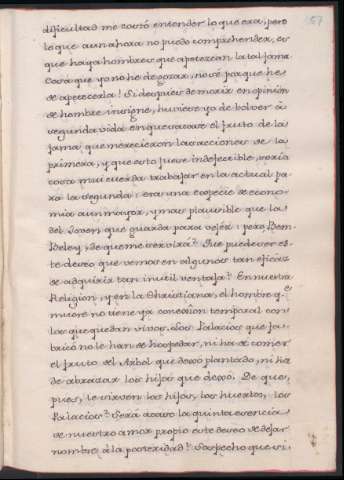 57
dificultad me costó entender lo que era, pero
lo que aun ahora no puedo comprehender, es
que haya hombres que apetezcan la tal fama.
Cosa que yo no he de gozar, no sé porque he
de apetecerla! Si despues de morir en opinion
de hombre insigne, huviese yo de bolver à
segunda vida en que sacase el fruto de la
fama que merecieron las acciones de la
primera, y que esto fuese indefectible, seria
cosa mui cuerda trabajar en la actual pa-
ra la segunda: era una especie de econo-
mia aun mayor, y mas plausible que la
del Joven que guarda para vejéz: pero Ben-
Beley, de que me servirá? Que puede ser es-
te deseo que vemos en algunos tan eficáz
de adquirir tan inutil ventaja? En nuestra
Religion, y en la Christiana, el hombre q.e
muere no tiene ya conexîon temporal con
los que quedan vivos. Los Palacios que fa-
bricó no le han de hospedar, ni ha de comer
el fruto del Arbol que dexó plantado, ni ha
de abrazar los hijos que dexó. De que,
pues, le sirven los hijos, los huertos, los
Palacios? Será acaso la quinta esencia
de nuestro amor propio este deseo de dejar
nombre à la posteridad? Sospecho que si.